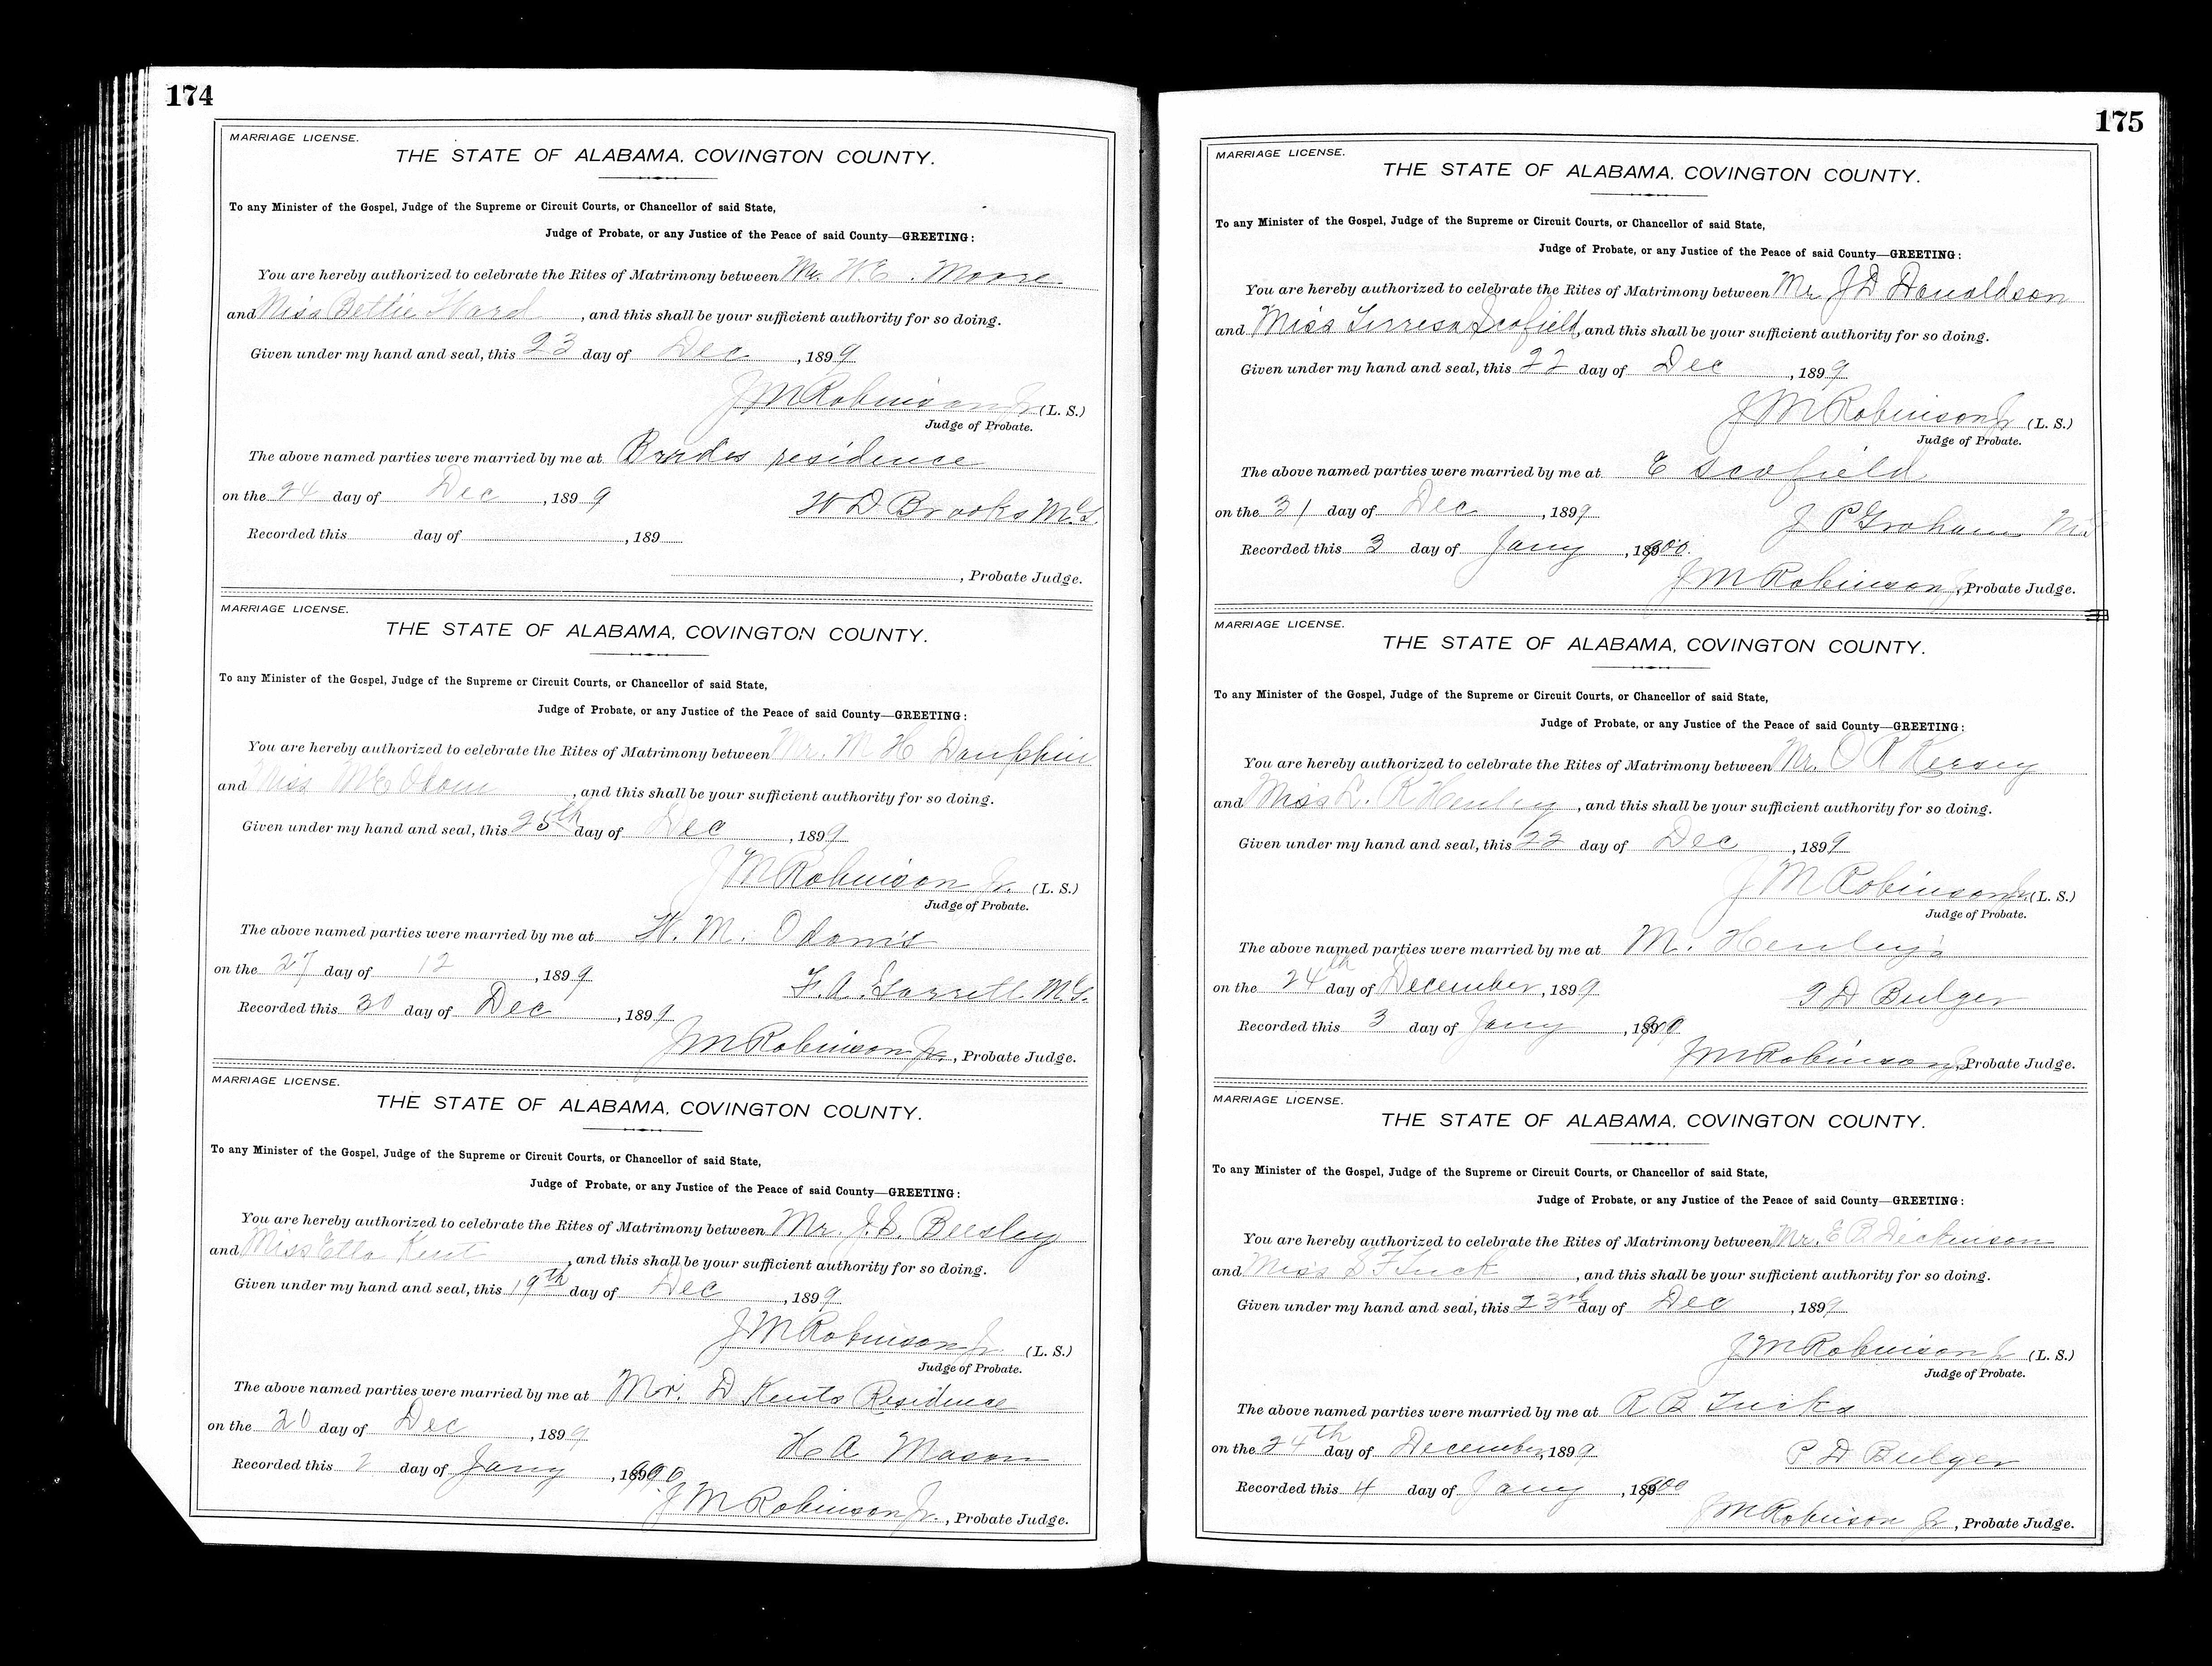 174
MARRIAGE LICENSE.
THE STATE OF ALABAMA, COVINGTON COUNTY.
To any Minister of the Gospel, Judge of the Supreme or Circuit Courts, or Chancellor of said State,
Judge of Probate, or any Justice of the Peace of said County—GREETING:
You are hereby authorized to celebrate the Rites of Matrimony between Mr. W.E. Moore
and Miss Bettie Ward, and this shall be your sufficient authority for so doing.
Given under my hand and seal, this 23 day of Dec, 1899
J M Robinson Jr (L. S.)
Judge of Probate.
The above named parties were married by me at residence
on the 24 day of Dec, 1899
W D Brooks M.G.
Recorded this day of , 189
, Probate Judge.
MARRIAGE LICENSE.
THE STATE OF ALABAMA, COVINGTON COUNTY.
To any Minister of the Gospel, Judge of the Supreme or Circuit Courts, or Chancellor of said State,
Judge of Probate, or any Justice of the Peace of said County—GREETING:
You are hereby authorized to celebrate the Rites of Matrimony between Mr. M H Dauphin
and Miss M E Odom, and this shall be your sufficient authority for so doing.
Given under my hand and seal, this 25th day of Dec, 1899
J M Robinson Jr. (L. S.)
Judge of Probate.
The above named parties were married by me at W. M. Odom's
on the 27 day of 12, 1899
F. A. M.G.
Recorded this 30 day of Dec, 1899
J M Robinson Jr., Probate Judge.
MARRIAGE LICENSE.
THE STATE OF ALABAMA, COVINGTON COUNTY.
To any Minister of the Gospel, Judge of the Supreme or Circuit Courts, or Chancellor of said State,
Judge of Probate, or any Justice of the Peace of said County—GREETING:
You are hereby authorized to celebrate the Rites of Matrimony between Mr. Beesley
and Miss Ella Kent, and this shall be your sufficient authority for so doing.
Given under my hand and seal, this 19th day of Dec, 1899
J M Robinson Jr. (L. S.)
Judge of Probate.
The above named parties were married by me at Mr. D Kents Residence
on the 20 day of Dec, 1899
H A Mason
Recorded this 2 day of Jany, 1900
J M Robinson Jr., Probate Judge.
175
MARRIAGE LICENSE.
THE STATE OF ALABAMA, COVINGTON COUNTY.
To any Minister of the Gospel, Judge of the Supreme or Circuit Courts, or Chancellor of said State,
Judge of Probate, or any Justice of the Peace of said County—GREETING:
You are hereby authorized to celebrate the Rites of Matrimony between Mr J D Donaldson
and Miss Terresa Scofield, and this shall be your sufficient authority for so doing.
Given under my hand and seal, this 22 day of Dec, 1899
J M Robinson Jr (L. S.)
Judge of Probate.
The above named parties were married by me at E Scofield
on the 31 day of Dec, 1899
J P Graham
Recorded this 3 day of Jany, 1900.
J M Robinson Jr, Probate Judge.
MARRIAGE LICENSE.
THE STATE OF ALABAMA, COVINGTON COUNTY.
To any Minister of the Gospel, Judge of the Supreme or Circuit Courts, or Chancellor of said State,
Judge of Probate, or any Justice of the Peace of said County—GREETING:
You are hereby authorized to celebrate the Rites of Matrimony between Mr. O R Kersey
and Miss L. R Henley, and this shall be your sufficient authority for so doing.
Given under my hand and seal, this 22 day of Dec, 1899
J M Robinson Jr. (L. S.)
Judge of Probate.
The above named parties were married by me at M. Henley's
on the 24th day of December, 1899
D Bulger
Recorded this 3 day of Jany, 1900
J M Robinson Jr, Probate Judge.
MARRIAGE LICENSE.
THE STATE OF ALABAMA, COVINGTON COUNTY.
To any Minister of the Gospel, Judge of the Supreme or Circuit Courts, or Chancellor of said State,
Judge of Probate, or any Justice of the Peace of said County—GREETING:
You are hereby authorized to celebrate the Rites of Matrimony between Mr. E B Dickinson
and Miss S F Tuck, and this shall be your sufficient authority for so doing.
Given under my hand and seal, this 23rd day of Dec, 1899
J M Robinson Jr (L. S.)
Judge of Probate.
The above named parties were married by me at R B Tucks
on the 24th day of December, 1899
D Bulger
Recorded this 4 day of Jany, 1900
J M Robinson Jr, Probate Judge.